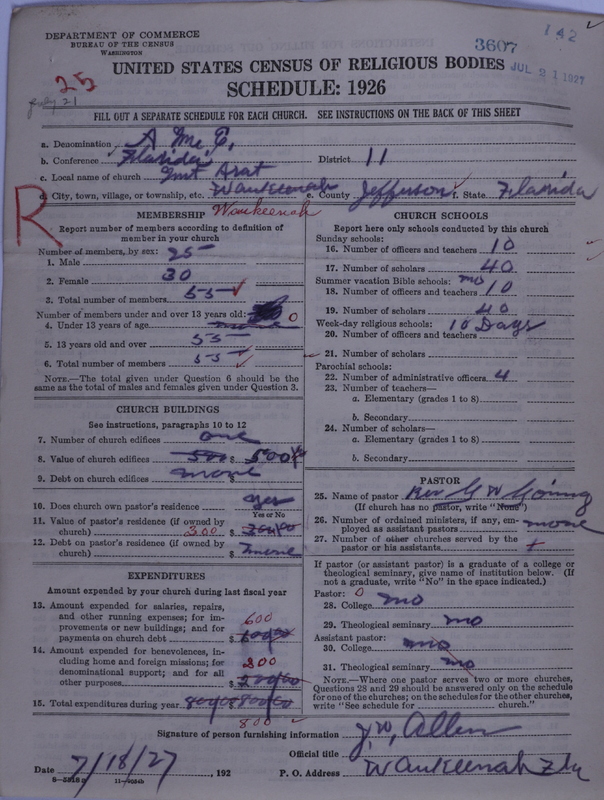 DEPARTMENT OF COMMERCE
BUREAU OF THE CENSUS
WASHINGTON
3607
142
JUL 21 1927
25
July 21
UNITED STATES CENSUS OF RELIGIOUS BODIES
SCHEDULE: 1926
FILL OUT A SEPARATE SCHEDULE FOR EACH CHURCH. SEE INSTRUCTIONS ON THE BACK OF THIS SHEET
a. Denomination A Me E.
b. Conference Florida District 11
c. Local name of church
d. City, town, village, or township, etc. Waukeenah e. County Jefferson f. State Florida
R
Waukeenah
MEMBERSHIP
Report number of members according to definition of
member in your church
Number of members, by sex:
1. Male 25
2. Female 30
3. Total number of members 55
Number of members under and over 13 years old:
4. Under 13 years of age none 0
5. 13 years old and over 55
6. Total number of members 55
NOTE.—The total given under Question 6 should be the
same as the total of males and females given under Question 3.
CHURCH BUILDINGS
See instructions, paragraphs 10 to 12
7. Number of church edifices one
8. Value of church edifices 500 $ 500
9. Debt on church edifices none
10. Does church own pastor's residence? yes
Yes or No
11. Value of pastor's residence (if owned by
church) 200 $
12. Debt on pastor's residence (if owned by
church) $ none
EXPENDITURES
Amount expended by your church during last fiscal year
13. Amount expended for salaries, repairs,
and other running expenses; for im-
provements or new buildings; and for
payments on church debt $ 600
14. Amount expended for benevolences, in-
cluding home and foreign missions; for
denominational support; and for all
other purposes $ 200
15. Total expenditures during year
800
CHURCH SCHOOLS
Report here only schools conducted by this church
Sunday schools:
16. Number of officers and teachers 10
17. Number of scholars 40
Summer vacation Bible schools: no
18. Number of officers and teachers 10
19. Number of scholars 40
Week-day religious schools: 10 Days
20. Number of officers and teachers
21. Number of scholars
Parochial schools:
22. Number of administrative officers 4
23. Number of teachers—
a. Elementary (grades 1 to 8)
b. Secondary
24. Number of scholars—
a. Elementary (grades 1 to 8)
b. Secondary
PASTOR
25. Name of pastor Rev G W
(If church has no pastor, write "None")
26. Number of ordained ministers, if any, em-
ployed as assistant pastors none
27. Number of other churches served by the
pastor or his assistants
If pastor (or assistant pastor) is a graduate of a college or
theological seminary, give name of institution below. (If
not a graduate, write "No" in the space indicated.)
Pastor: 0
28. College no
29. Theological seminary no
Assistant pastor:
30. College no
31. Theological seminary no
NOTE.—Where one pastor serves two or more churches,
Questions 28 and 29 should be answered only on the schedule
for one of the churches; on the schedules for the other churches,
write "See schedule for church."
Signature of person furnishing information J. W. Allen
Official title
Date 7/18/27, 192 P. O. Address Waukeenah Fla